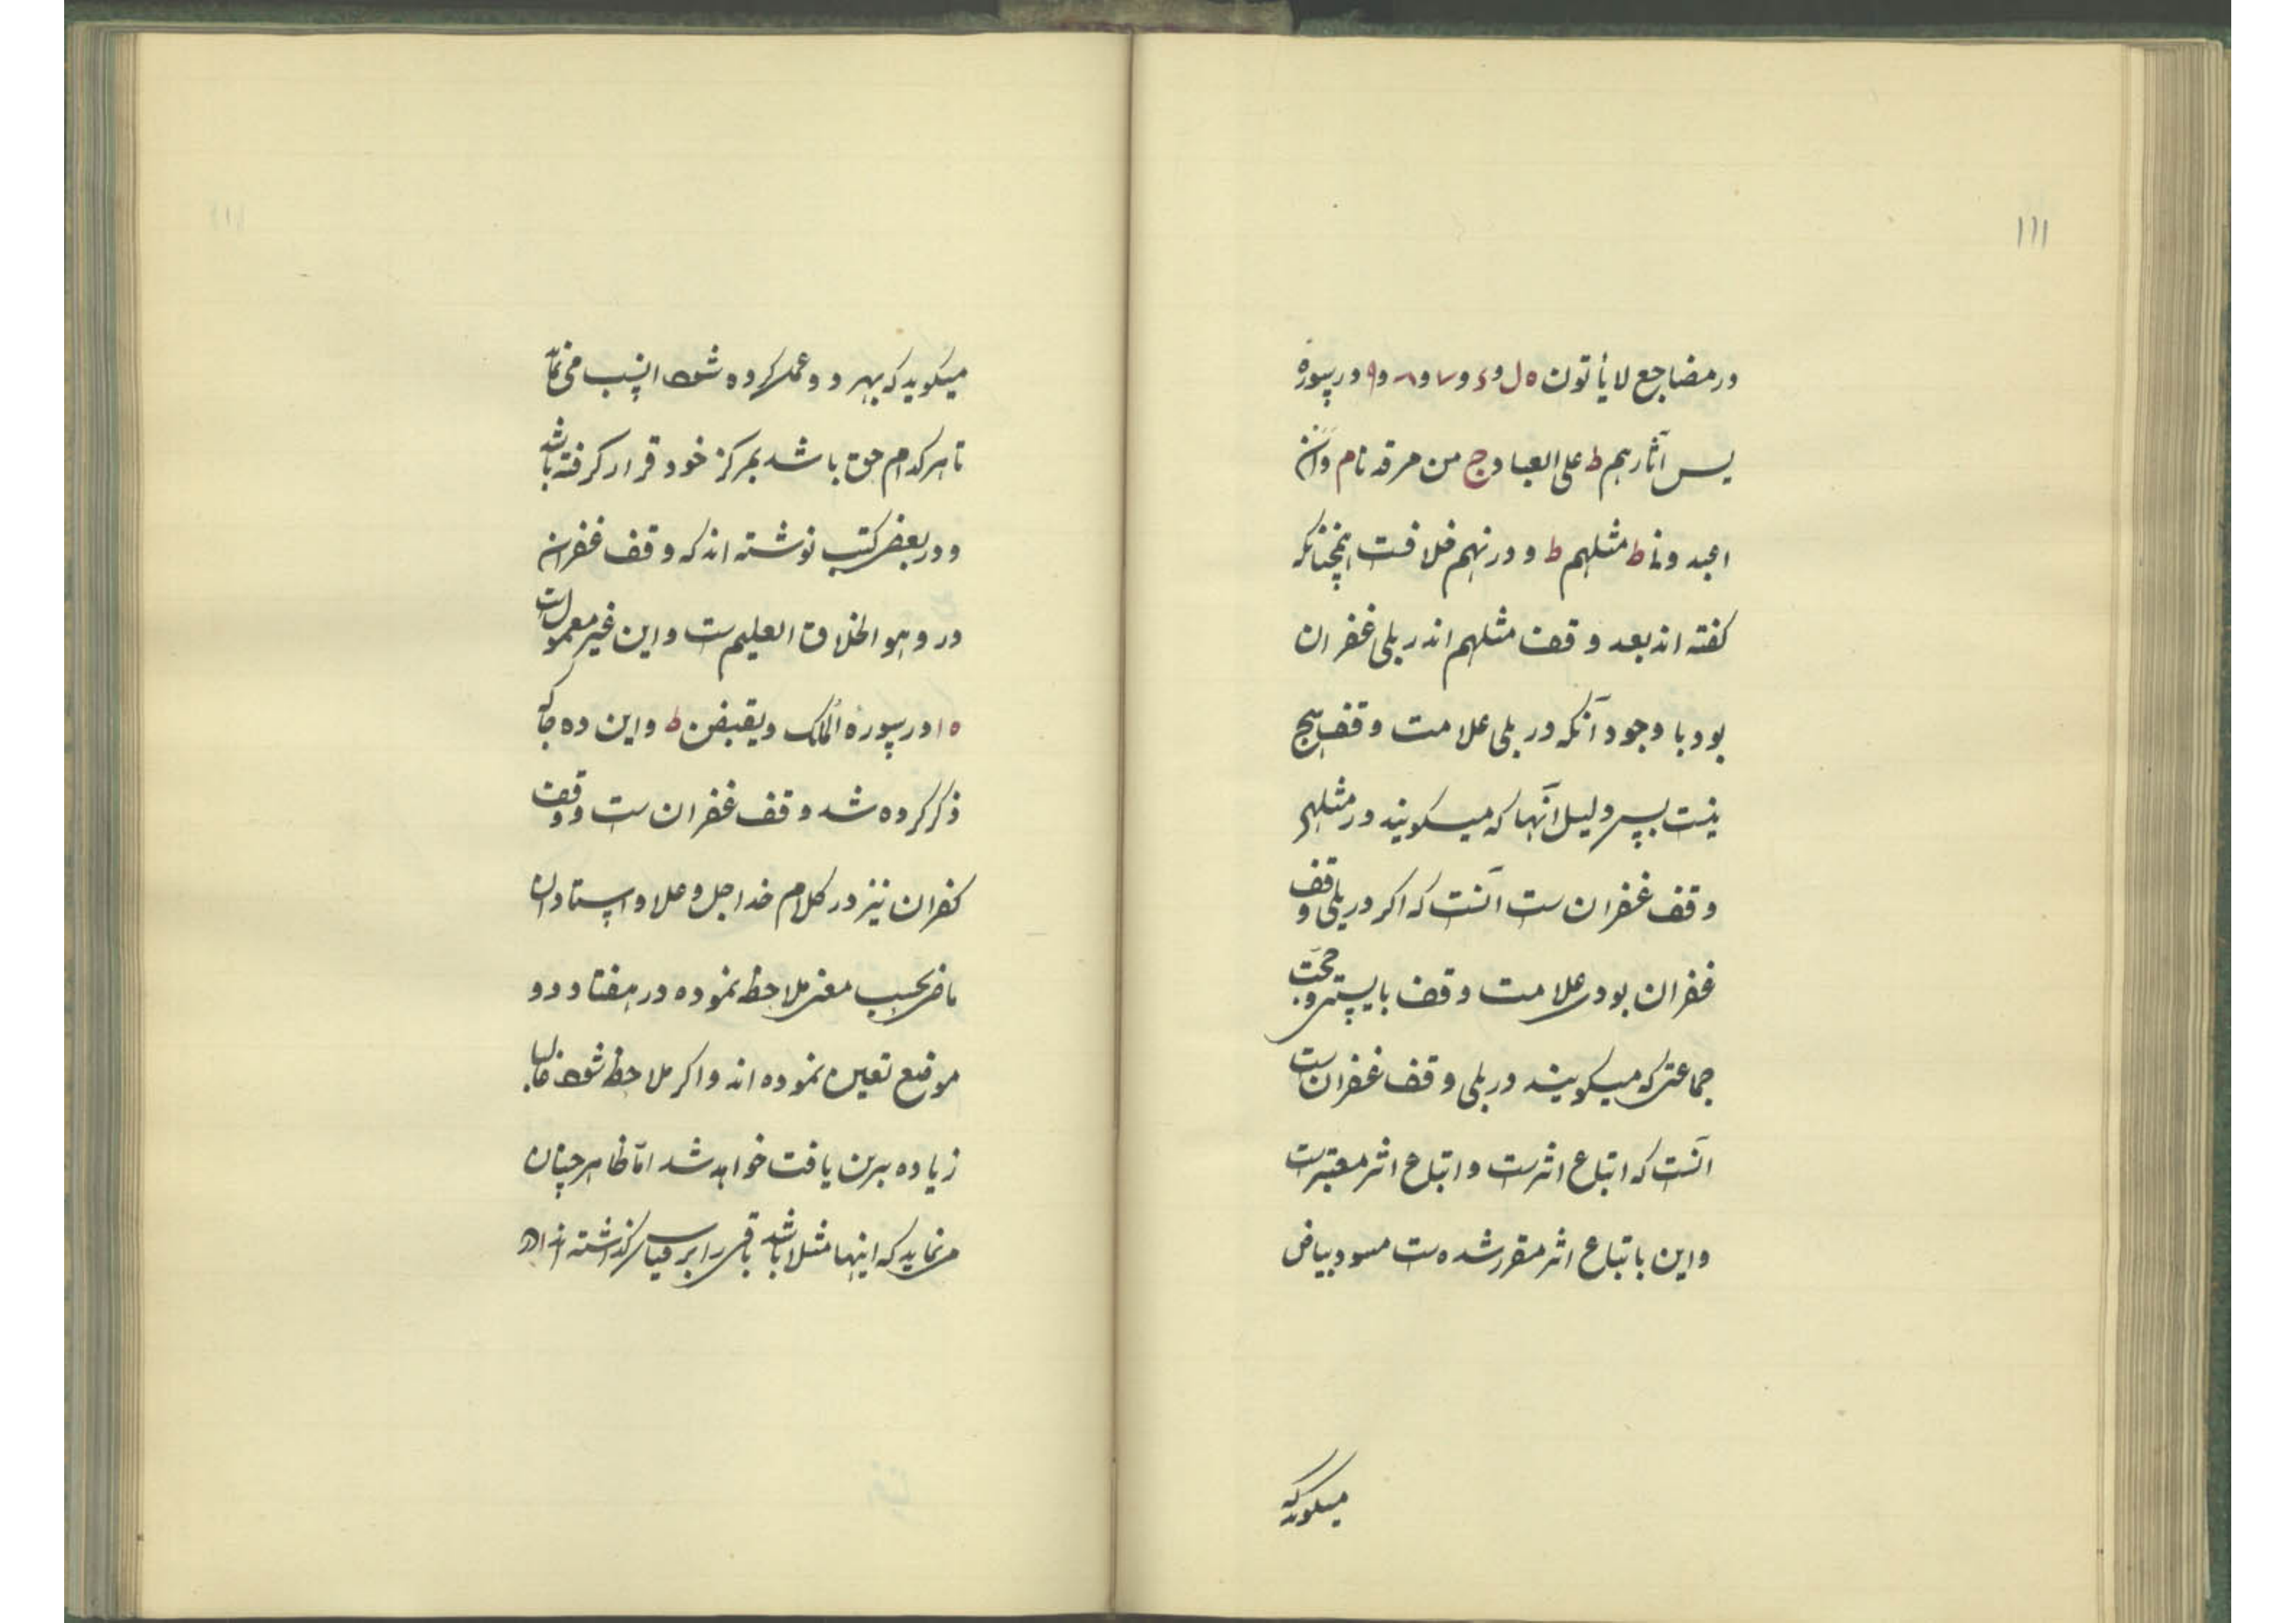 ۱۱۱
در مضاجع لا یأتون ه ل و ۶ و ۷ و ۸ و ۹ در سوره
یس آثارهم ط علی العباد ج من مرقدنا م وان
اعبدونی ط مثلهم ط و در نهم خلافست همچنانکه
کفته اند بعد وقف مثلهم اندر بلی غفران
بود با وجود آنکه در بلی علامت وقف هیچ
نیست پس دلیل آنها که میکویند در مثلهم
وقف غفران ست آنست که اکر در بلی وقف
غفران بودی علامت وقف بایستی و حجت
جماعتی که میکویند در بلی وقف غفران ست
آنست که اتباع اثرست و اتباع اثر معتبرست
و این باتباع اثر مقرر شده ست مسود بیاض
میکوید که
میکوید که بهر دو عمل کرده شود انسب می نماید
تا هر کدام حق باشد بمرکز خود قرار کرفته باشد
و در بعض کتب نوشته اند که وقف غفران
در وهو الخلاق العلیم ست و این غیر معمول است
۱۰ در سوره الملک ویقبضن ط و این ده جا که
ذکر کرده شد وقف غفران ست و وقف
کفران نیز در کلام خدا جل و علا و استادان
ماضی بحسب معنی ملاحظه نموده در هفتاد و دو
موضع تعین نموده اند و اکر ملاحظه شود غالبا
زیاده برین یافت خواهد شد امّا ظاهر چنان
می نماید که اینها مثلا باشد باقی را بر قیاس کذاشته اند